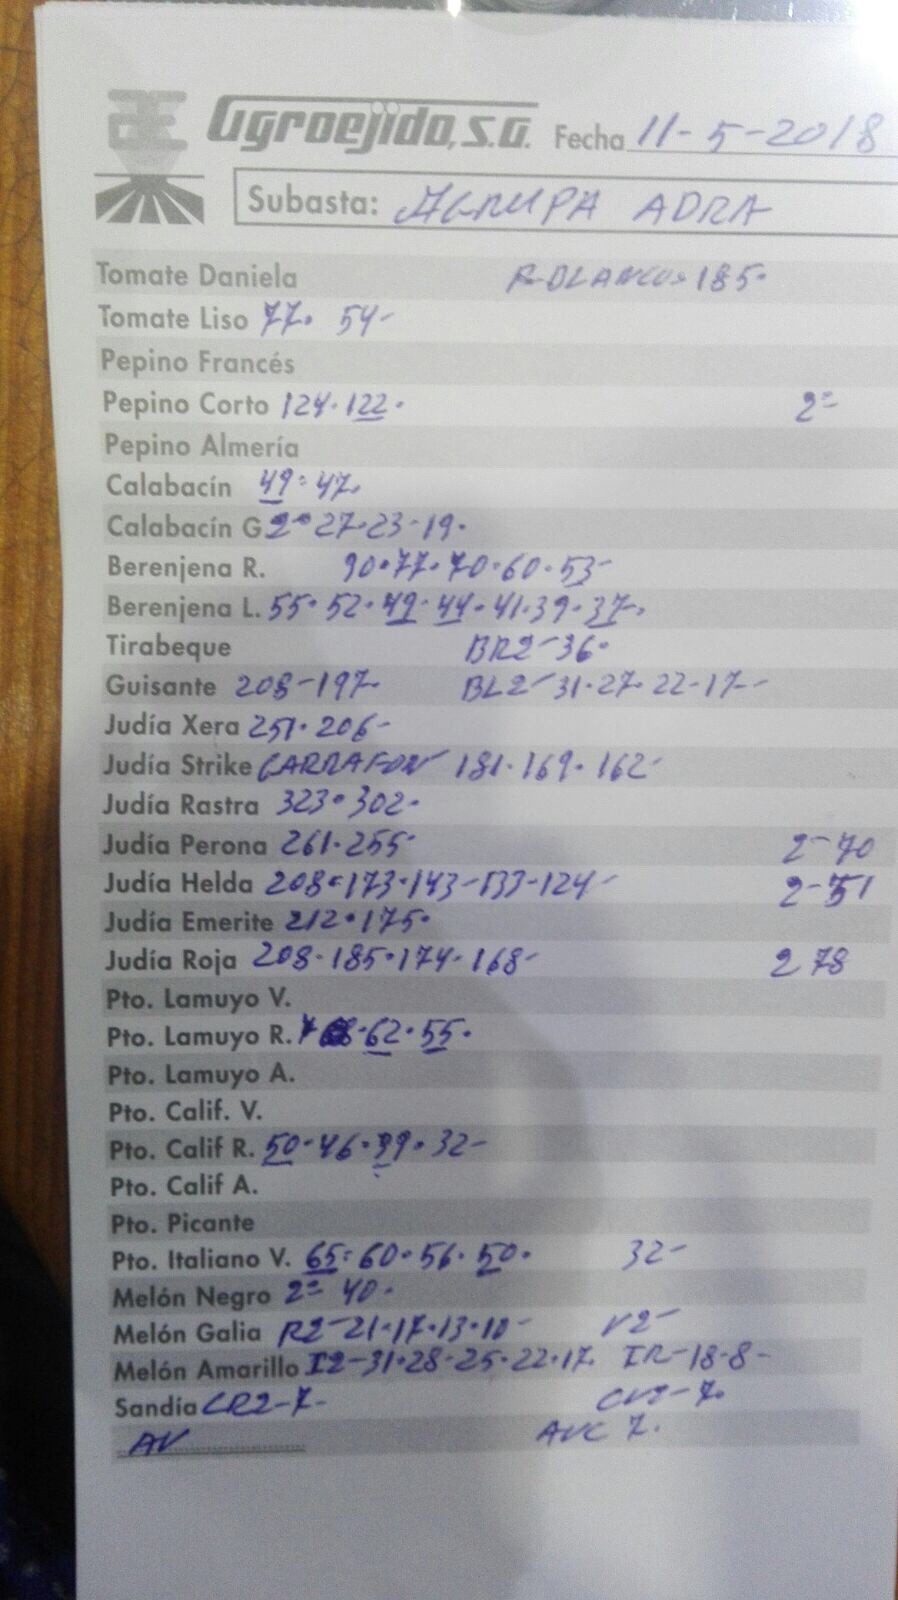 Agroejido, S.A. Fecha 11-5-2018
Subasta: AGRUPA ADRA
Tomate Daniela 185.
Tomate Liso 77. 54-
Pepino Francés
Pepino Corto 124.122. 2ª
Pepino Almería
Calabacín 49.47.
Calabacín G 2ª 27.23-19.
Berenjena R. 90.77.70.60.53-
Berenjena L. 55.52.49.44.41.39.37.
Tirabeque BR2-36.
Guisante 208-197. BL2-31.27.22-17-
Judía Xera 251.206-
Judía Strike GARRAFON 181.169.162-
Judía Rastra 323.302.
Judía Perona 261.255- 2-70
Judía Helda 208.173.143-133-124- 2-51
Judía Emerite 212.175.
Judía Roja 208.185.174.168- 2 78
Pto. Lamuyo V.
Pto. Lamuyo R. 68.62.55.
Pto. Lamuyo A.
Pto. Calif. V.
Pto. Calif R. 50.46.39.32-
Pto. Calif A.
Pto. Picante
Pto. Italiano V. 65.60.56.50. 32-
Melón Negro 2ª 40.
Melón Galia R2-21.17.13.10- V2-
Melón Amarillo I2-31.28.25.22.17. IR-18-8-
Sandía CR2-7- 7.
AV AVC 7.